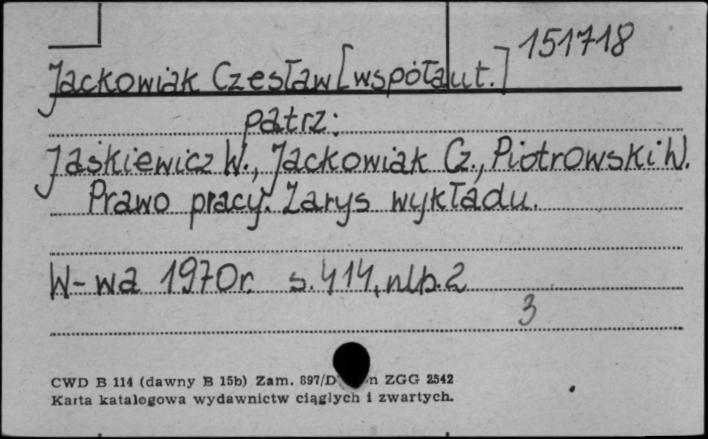 151718
Jackowiak Czesław [współaut.]
patrz:
Jaśkiewicz W., Jackowiak Cz., Piotrowski W.
Prawo pracy. Zarys wykładu.
W-wa 1970r. s. 414, nlb. 2
3
CWD B 114 (dawny B 15b) Zam. 897/D n ZGG 2542
Karta katalogowa wydawnictw ciągłych i zwartych.